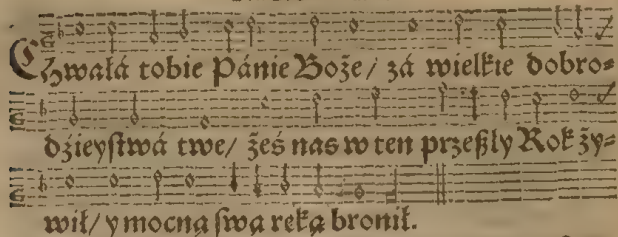 Chwałá tobie Pánie Boże / zá wielkie dobro⸗
dźieyſtwá twe / żeś nas w ten przeßły Rok ży⸗
wił / y mocną ſwą ręką bronił.